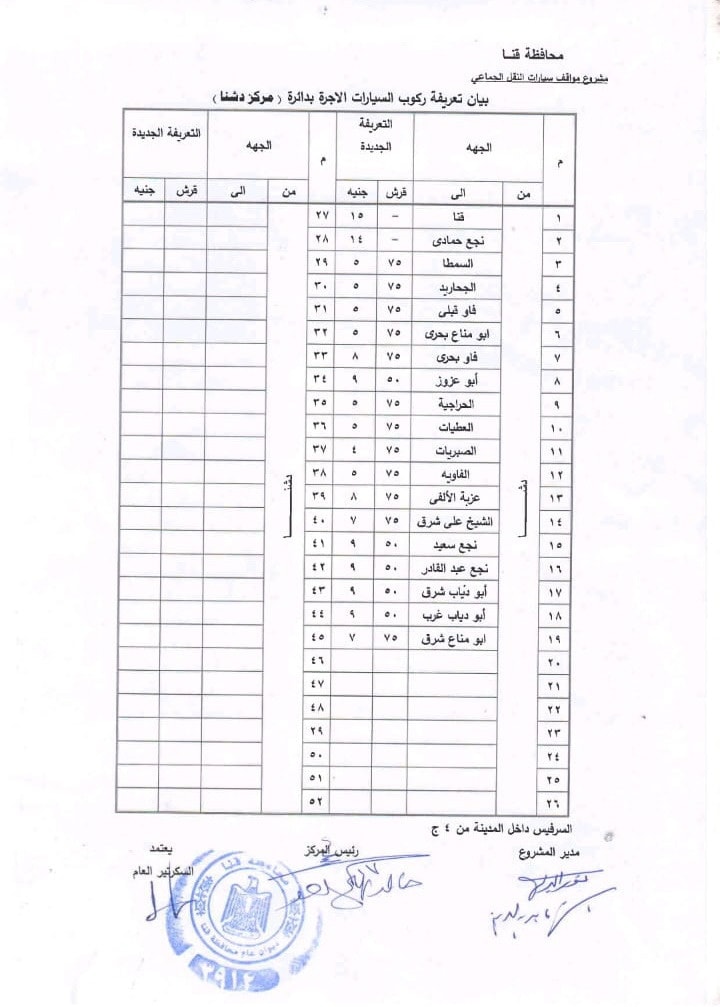 محافظة قنــا
مشروع مواقف سيارات النقل الجماعي
بيان تعريفة ركوب السيارات الاجرة بدائرة ( مركز دشنا )
م الجهه التعريفة الجديدة م الجهه التعريفة الجديدة
من الى قرش جنيه من الى قرش جنيه
١ قنا – ١٥ ٢٧
٢ نجع حمادى – ١٤ ٢٨
٣ السمطا ٧٥ ٥ ٢٩
٤ الجحاريد ٧٥ ٥ ٣٠
٥ فاو قبلى ٧٥ ٥ ٣١
٦ ابو مناع بحرى ٧٥ ٥ ٣٢
٧ فاو بحرى ٧٥ ٨ ٣٣
٨ أبو عزوز ٥٠ ٩ ٣٤
٩ الحراجية ٧٥ ٥ ٣٥
١٠ العطيات ٧٥ ٥ ٣٦
١١ الصبريات ٧٥ ٤ ٣٧
١٢ الفاويه ٧٥ ٥ ٣٨
١٣ عزبة الألفى ٧٥ ٨ ٣٩
١٤ الشيخ على شرق ٧٥ ٧ ٤٠
١٥ نجع سعيد ٥٠ ٩ ٤١
١٦ نجع عبد القادر ٥٠ ٩ ٤٢
١٧ أبو دياب شرق ٥٠ ٩ ٤٣
١٨ أبو دياب غرب ٥٠ ٩ ٤٤
١٩ ابو مناع شرق ٧٥ ٧ ٤٥
٢٠ ٤٦
٢١ ٤٧
٢٢ ٤٨
٢٣ ٢٩
٢٤ ٥٠
٢٥ ٥١
٢٦ ٥٢
دشنــــا
دشنــــا
السرفيس داخل المدينة من ٤ ج
مدير المشروع رئيس المركز يعتمد
السكرتير العام
محافظة قنا
ديوان عام محافظة قنا
٣٩١٢